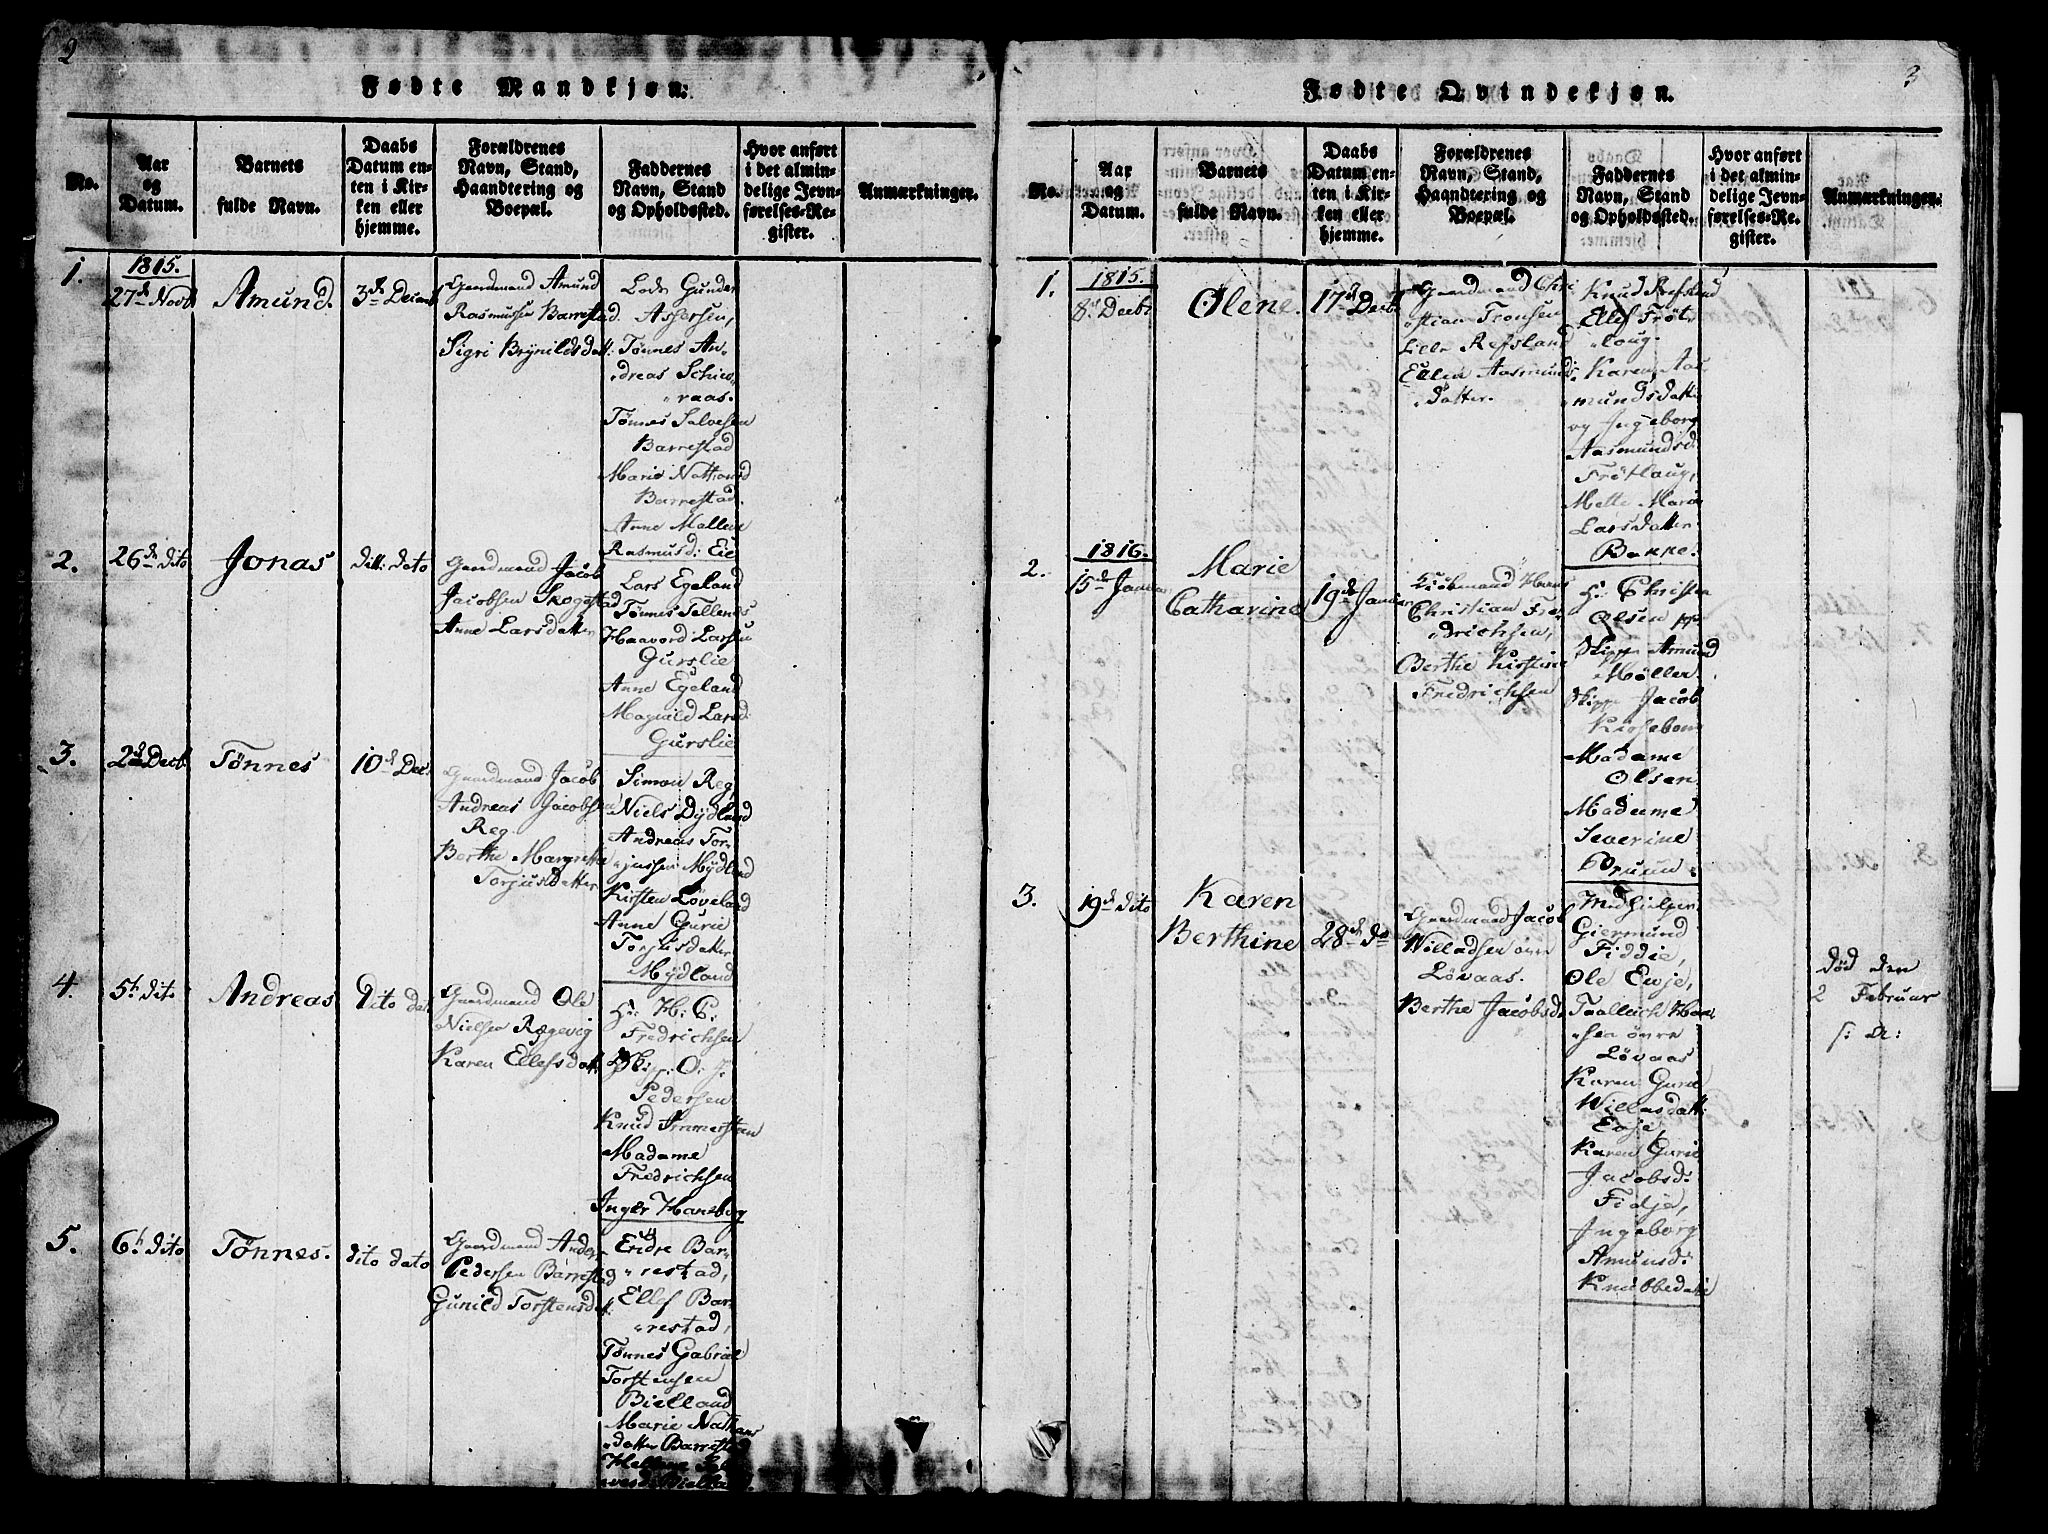 2
Fødte Mandkjøn.
No.
Aar
og
Datum.
Barnets
fulde Navn.
Daabs
Datum en-
ten i Kir-
ken eller
hjemme.
Forældrenes
Navn, Stand,
Haandtering og
Boepæl.
Faddernes
Navn, Stand
og Opholdssted.
Hvor anført
i det almin-
delige Jevn-
førelses-Re-
gister.
Anmærkninger.
1.
1815.
27de Novb
Amund.
3de Decemb
Gaardmand Amund
Rasmussen Barrestad.
Sigri Brynildsdatt:
Gunder
Assersen,
Tønnes An-
dreas Schie-
raas.
Tønnes Salvesen
Barrestad
Marie Nathansd
Barrestad.
Anne Mallene
Rasmusd: Eie
2.
26de dito
Jonas
dito dato
Gaardmand Jacob
Jacobsen Skogestad
Anne Larsdatter
Lars Egeland
Tønnes Tellenes
Haavord Larsen
Gurslie
Anne Egeland
Magnild Larsd:
Gurslie
3.
2de Decb.
Tønnes
10de Dec.
Gaardmand Jacob
Andreas Jacobsen
Reg.
Berthe Margrethe
Torjusdatter
Simon Reg,
Niels Dydland
Andreas Tor-
jussen Mydland
Kirsten Løveland
Anne Gurie
Torjusdatter
Mydland
4.
5te dito
Andreas
Dito dato
Gaardmand Ole
Nielsen Rægevig
Karen Ellefsdatt:
Hr: H: C:
Fredrichsen
Skip: O: J:
Pedersen
Knud Immerstan
Madame
Fredrichsen
Inger Haneborg
5.
6te dito
Tønnes.
dito dato
Gaardmand Anders
Pedersen Barrestad
Gunild Torstensdat.
Endre Bar-
restad,
Ellef Bar-
restad,
Tønnes Gabriel
Torstensen
Bielland
Marie Nathans
datter Barrestad
3
Fødte Qvindekjøn.
No.
Aar
og
Datum.
Barnets
fulde Navn.
Daabs
Datum en-
ten i Kir-
ken eller
hjemme.
Forældrenes
Navn, Stand,
Haandtering og
Boepæl.
Faddernes
Navn, Stand
og Opholdssted.
Hvor anført
i det almin-
delige Jevn-
førelses-Re-
gister.
Anmærkninger.
1.
1815.
8de Decbr
Olene.
17de Decbr
Gaardmand Chri
stian Tronsen
Lille Refsland
Ellen Aasmunds
datter.
Knud Refsland
Ellef Frøt-
loug.
Karen Aas-
mundsdatter
og Ingeborg
Aasmundsd
Frøtlaug,
Mette Marie
Larsdatter
Bakke.
2.
1816.
15de Januar
Marie
Catharine
19de Januar
Kiøbmand Hans
Christian Fre-
drichsen,
Berthe Kirstine
Fredrichsen
Hr: Christen
Olsen
Skipp Amund
Møller
Skipp Jacob
Kirsebom
Madame
Olsen
Madame
Severine
3.
19de dito
Karen
Berthine
28de do
Gaardmand Jacob
Willadsen øvre
Løvaas.
Berthe Jacobsd.
Medhielper
Giermund
Fiddie,
Ole Evje,
Taalleich Han-
sen øvre
Løvaas
Karen Gurie
Willasdatt:
Evje,
Karen Gurie
Jacobsd:
Fidje,
Ingeborg
Amunsd:
Knubbedalie
død den
2 Februar
s: A: